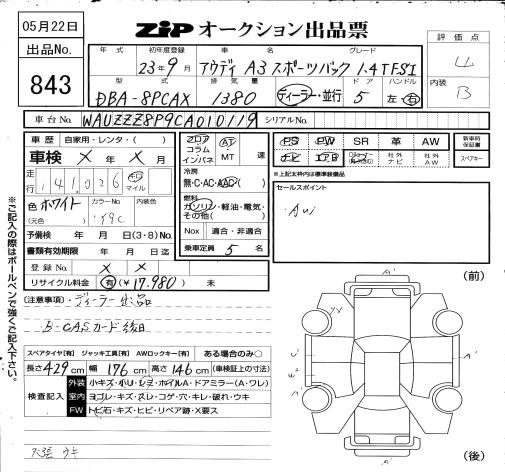 05月22日
ZIP オークション出品票
出品No.
843
評価点
4
内装
B
年式 初年度登録 車名 グレード
23年9月 アウディ A3 スポーツバック 1.4TFSI
型式 排気量 ドア ハンドル
DBA-8PCAX 1380 ディーラー・並行 5 左・右
車台No. WAUZZZ8P9CA010119 シリアルNo.
車歴 自家用・レンタ・( )
車検 X 年 X 月
走行 141,026 km マイル
色 ホワイト カラーNo. 内装色
(元色)
予備検 年 月 日(3・8)No.
書類有効期限 年 月 日迄
登録No. X X
リサイクル料金 有(¥17,980) 未
フロア コラム インパネ
AT MT 速
冷房
無・C・AC・AAC
燃料
ガソリン・軽油・電気・その他( )
Nox 適合・非適合
乗車定員 5 名
PS PW SR 革 AW
社外ナビ 社外AW
新車時保証書
スペアキー
※上記太枠内は標準装備品
セールスポイント
注意事項・ディーラー出品
B-CASカード後日
スペアタイヤ[有] ジャッキ工具[有] AWロックキー[有] ある場合のみ○
長さ429cm 幅176cm 高さ146cm (車検証上の寸法)
検査記入
外装 小キズ・小リ・シミ・ホイルA・ドアミラー(A・ワレ)
室内 ヨゴレ・キズ・スレ・コゲ・穴・キレ・破れ・ウキ
FW トビ石・キズ・ヒビ・リペア跡・X要ス
天張 ウキ
※ご記入の際はボールペンで強くご記入下さい。
(前)
(後)